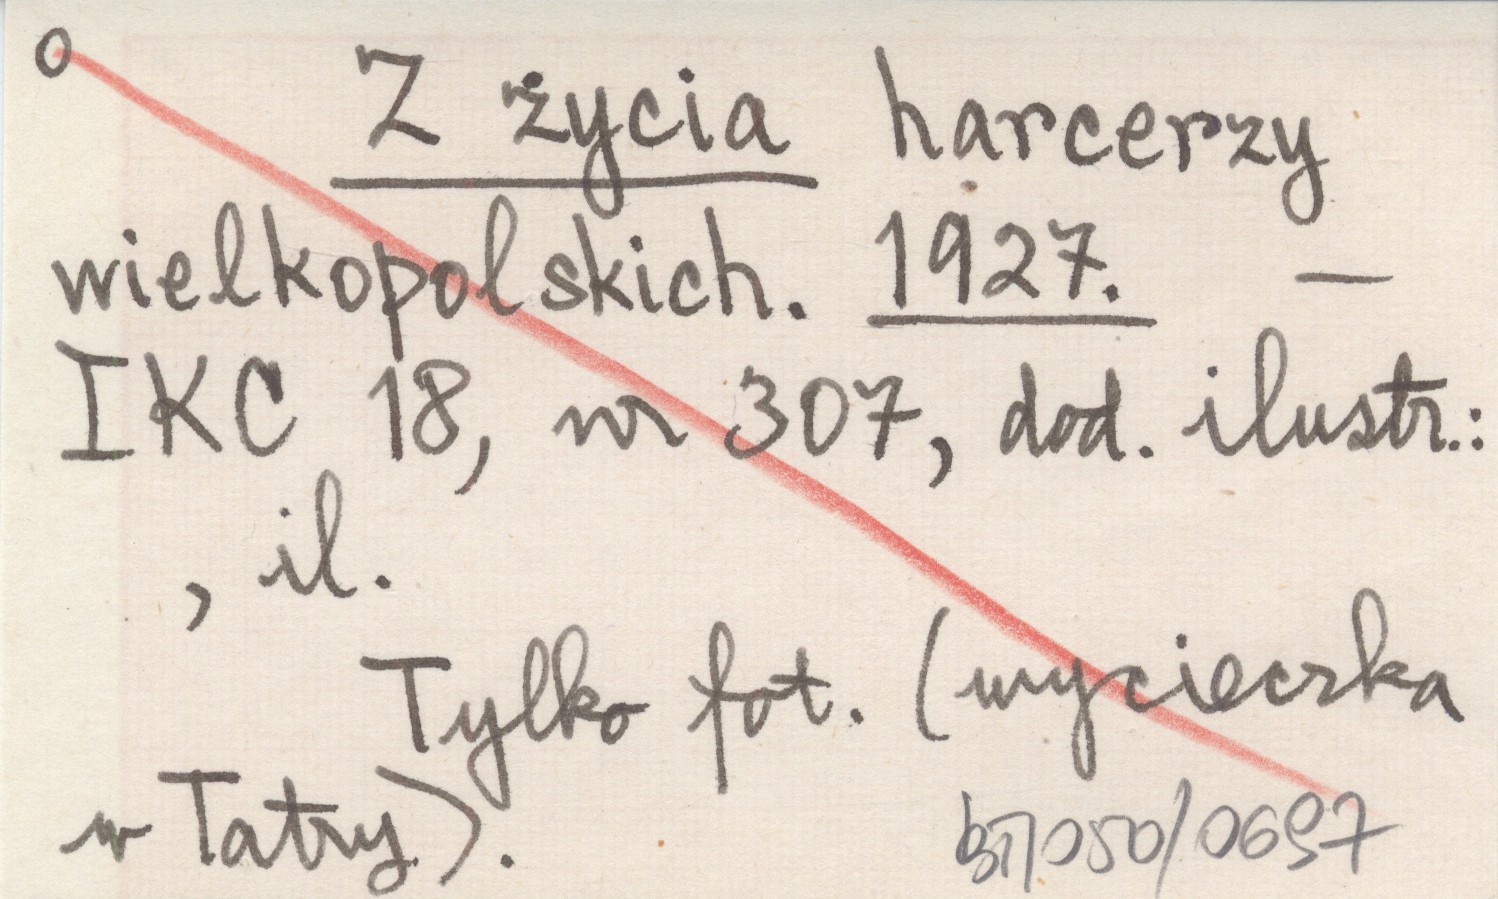 O
Z życia harcerzy
wielkopolskich. 1927. —
IKC 18, nr 307, dod. ilustr.:
, il.
Tylko fot. (wycieczka
w Tatry).
050/0697